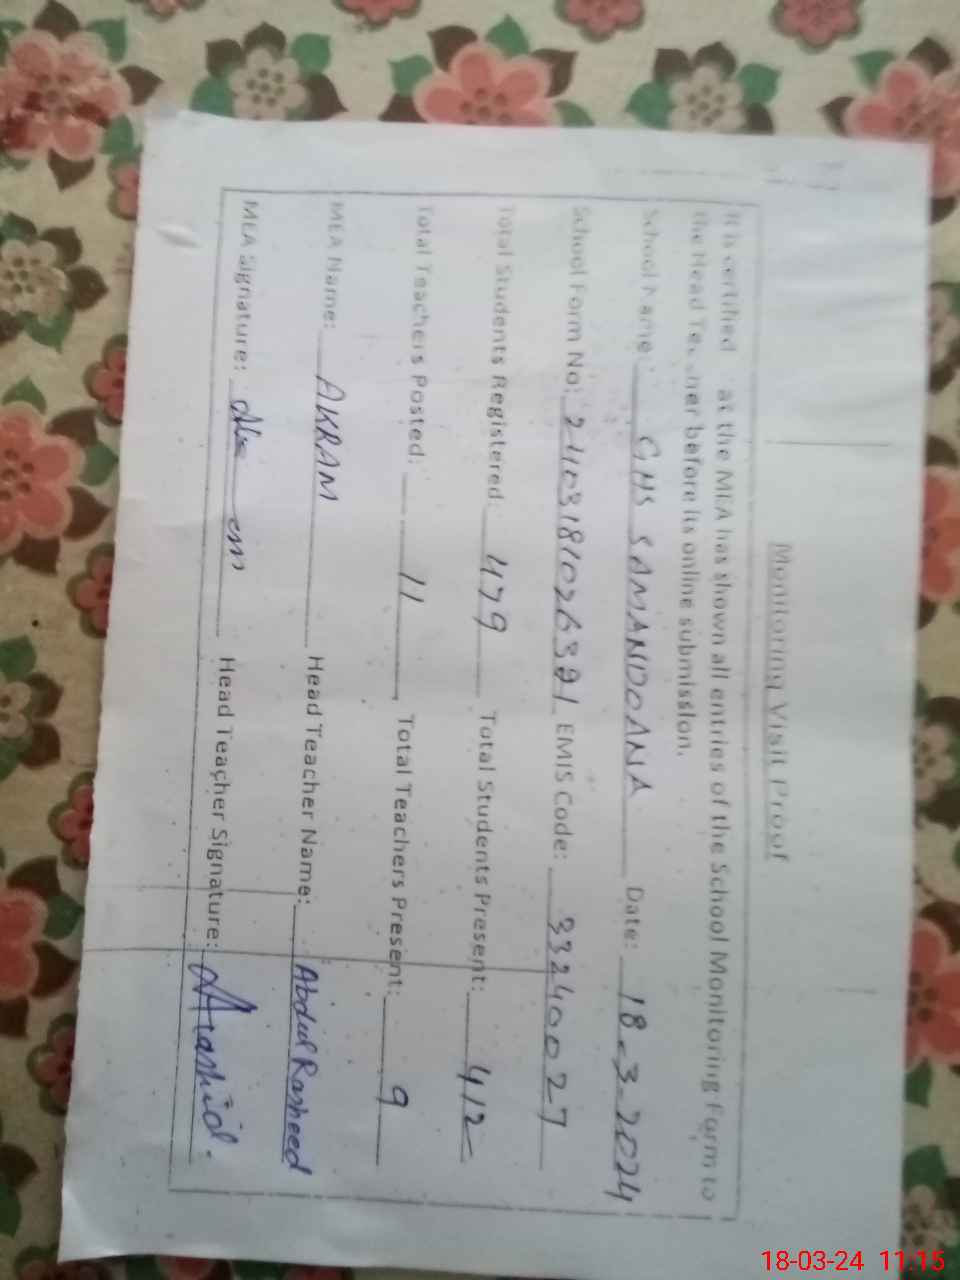 Monitoring Visit Proof
It is certified at the MEA has shown all entries of the School Monitoring Form to
the Head Teacher before its online submission.
School Name: GHS SAMANDOANA Date: 18-3-2024
School Form No: 2403181026321 EMIS Code: 33240027
Total Students Registered: 479 Total Students Present: 412
Total Teachers Posted: 11 Total Teachers Present: 9
MEA Name: AKRAM Head Teacher Name: Abdul Rasheed
MEA Signature: Head Teacher Signature: Arashid.
18-03-24 11:15